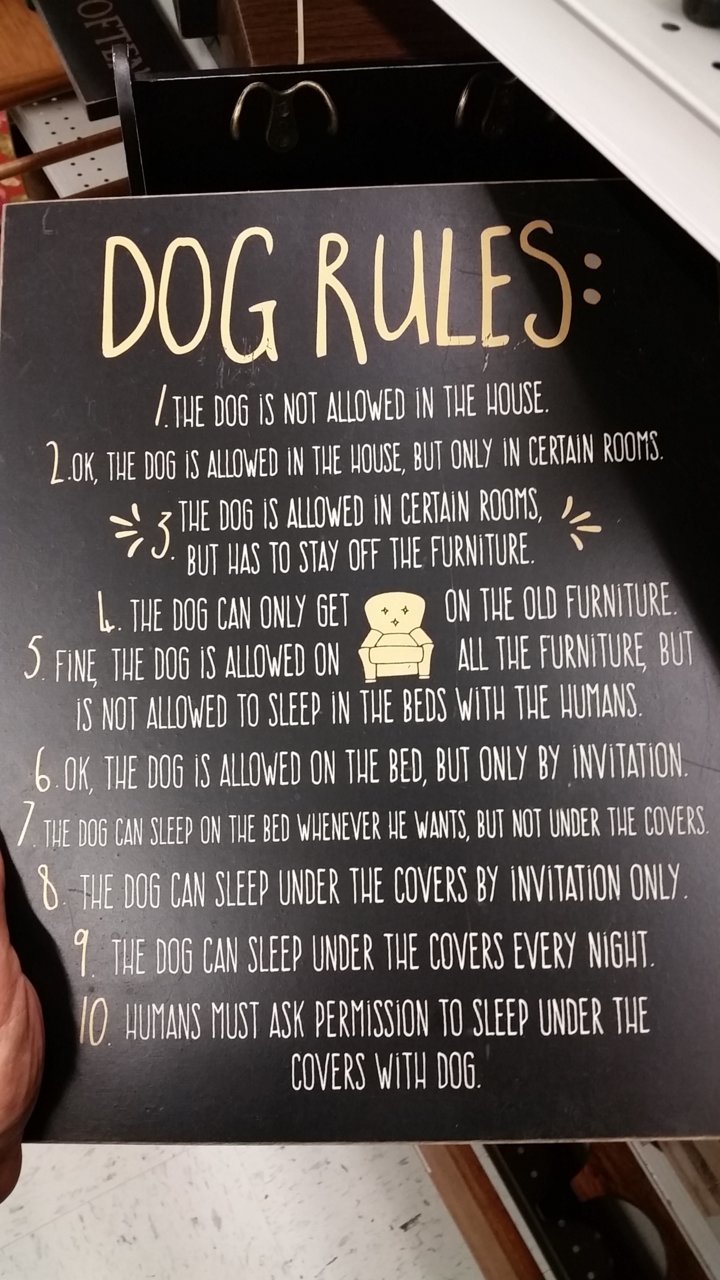 OFTEN
DOG RULES:
1. THE DOG IS NOT ALLOWED IN THE HOUSE.
2. OK, THE DOG IS ALLOWED IN THE HOUSE, BUT ONLY IN CERTAIN ROOMS.
3. THE DOG IS ALLOWED IN CERTAIN ROOMS,
BUT HAS TO STAY OFF THE FURNITURE.
4. THE DOG CAN ONLY GET ON THE OLD FURNITURE.
5. FINE, THE DOG IS ALLOWED ON ALL THE FURNITURE, BUT
IS NOT ALLOWED TO SLEEP IN THE BEDS WITH THE HUMANS.
6. OK, THE DOG IS ALLOWED ON THE BED, BUT ONLY BY INVITATION.
7. THE DOG CAN SLEEP ON THE BED WHENEVER HE WANTS, BUT NOT UNDER THE COVERS.
8. THE DOG CAN SLEEP UNDER THE COVERS BY INVITATION ONLY.
9. THE DOG CAN SLEEP UNDER THE COVERS EVERY NIGHT.
10. HUMANS MUST ASK PERMISSION TO SLEEP UNDER THE
COVERS WITH DOG.